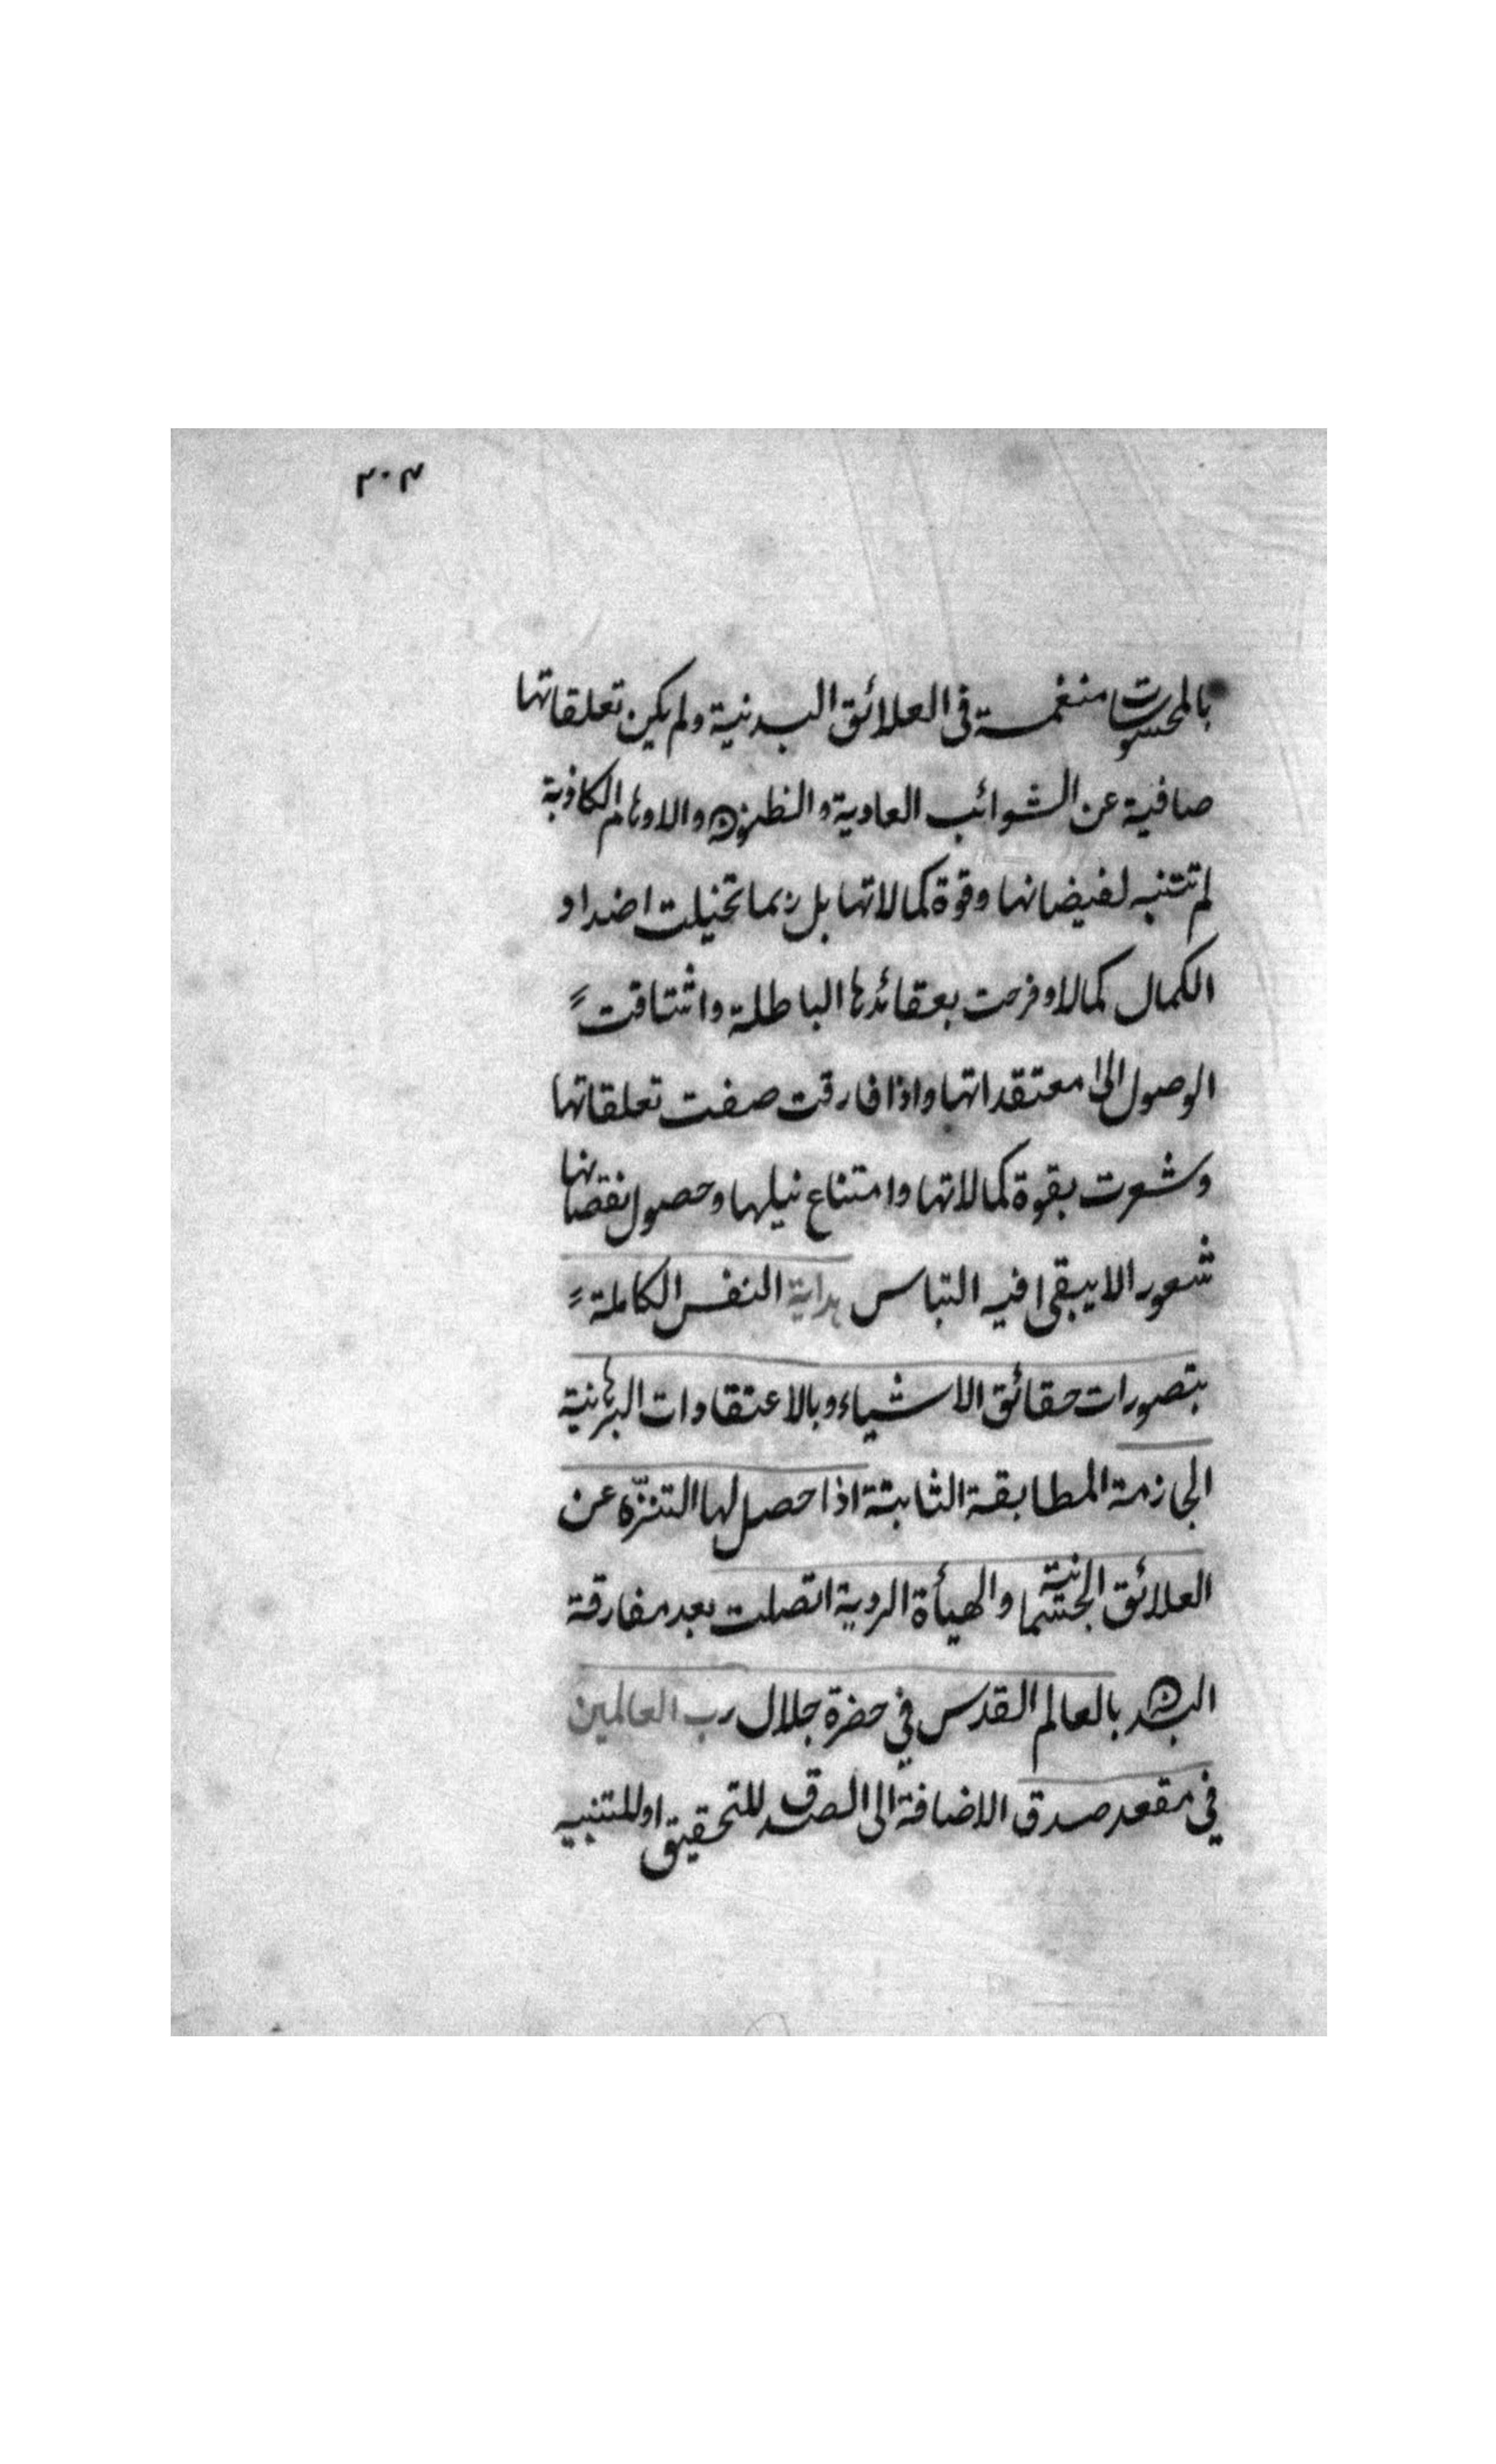 ٢٠٣
بالمحسوسات منغمسة فى العلائق البدنية ولم يكن تعلقاتها
صافية عن الشوائب العادية والظنون والاوهام الكاذبة
لم تتنبه لفيضانها وقوة كمالاتها بل ربما تخيلت اضداد
الكمال كمالا وفرحت بعقائدها الباطلة واشتاقت
الوصول الى معتقداتها واذا فارقت صفت تعلقاتها
وشعرت بقوة كمالاتها وامتناع نيلها وحصول نقصانها
شعورا لا يبقى فيه التباس هداية النفس الكاملة
بتصورات حقائق الاشياء وبالاعتقادات البرهانية
الجازمة المطابقة الثابتة اذا حصل لها التنزّه عن
العلائق الجسمانية والهيأة الردية اتصلت بعد مفارقة
البدن بالعالم القدس في حضرة جلال رب العالمين
في مقعد صدق الاضافة الى الصدق للتحقيق او للتنبيه